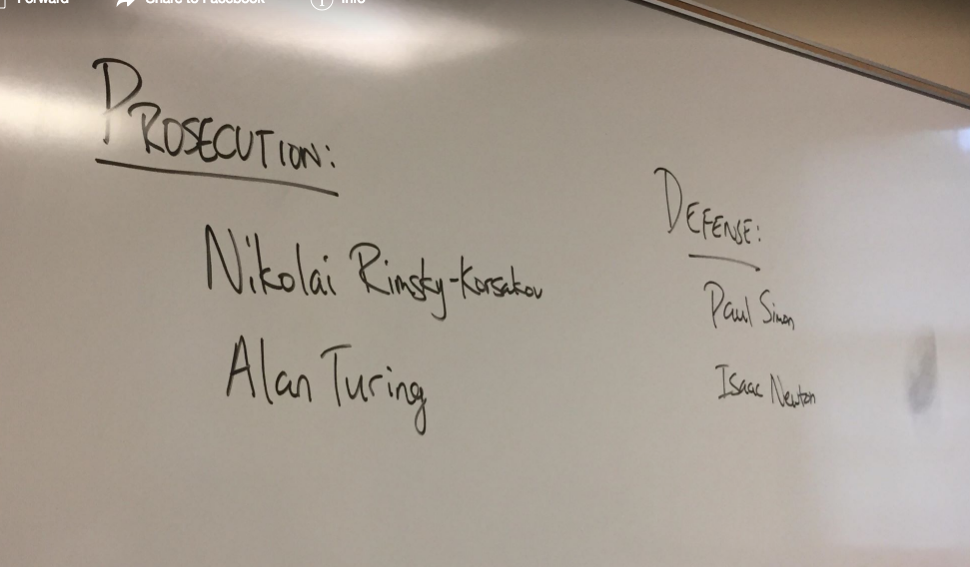 Forward Share to Facebook Info
PROSECUTION:
Nikolai Rimsky-Korsakov
Alan Turing
DEFENSE:
Paul Simon
Isaac Newton